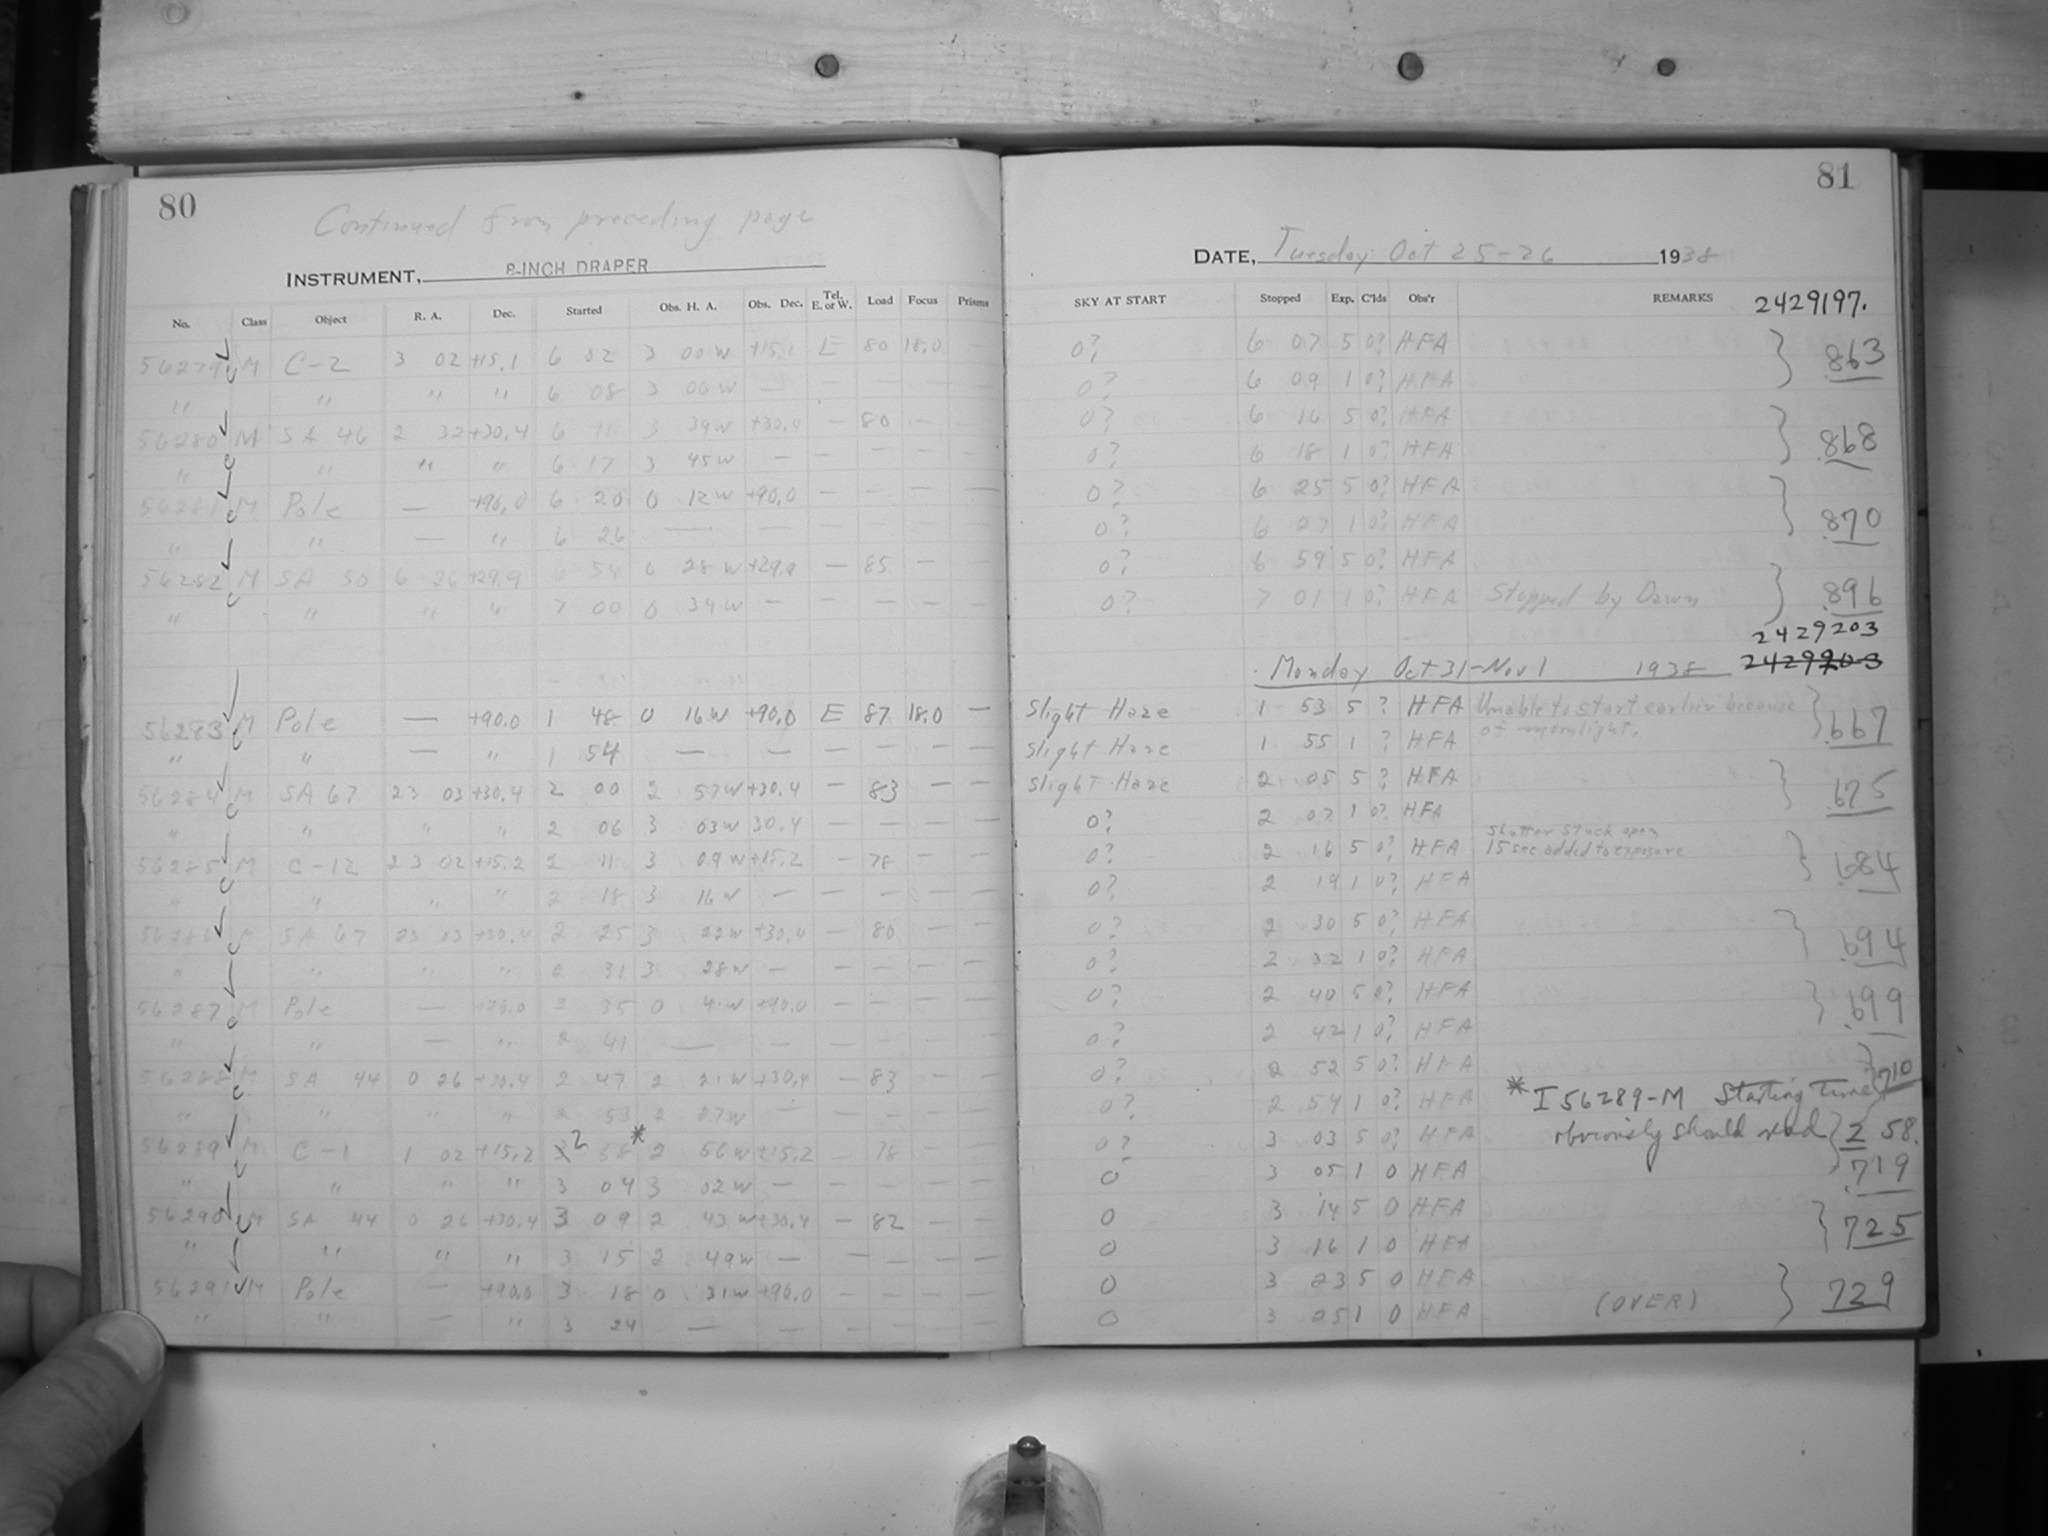 80
Continued from preceding page
INSTRUMENT, 8-INCH DRAPER
No. Class Object R. A. Dec. Started Obs. H. A. Obs. Dec. Tel. E. or W. Load Focus Prisms
56279 M C-2 3 02 +15.1 6 02 3 00 W +15.1 E 80 18.0 —
" " " " 6 08 3 06 W — — — — —
56280 M SA 46 2 32 +30.4 6 11 3 39 W +30.4 — 80 — —
" " " " 6 17 3 45 W — — — — —
56281 M Pole — +90.0 6 20 0 12 W +90.0 — — — —
" " — " 6 26 — — — — — —
56282 M SA 50 6 26 +29.9 6 54 0 28 W +29.9 — 85 — —
" " " " 7 00 0 34 W — — — — —
56283 M Pole — +90.0 1 48 0 16 W +90.0 E 87 18.0 —
" " — " 1 54 — — — — — —
56284 M SA 67 23 03 +30.4 2 00 2 57 W +30.4 — 83 — —
" " " " 2 06 3 03 W 30.4 — — — —
56285 M C-12 23 02 +15.2 2 11 3 09 W +15.2 — 78 — —
" " " " 2 18 3 16 W — — — — —
56286 M SA 67 23 03 +30.4 2 25 3 22 W +30.4 — 80 — —
" " " " 2 31 3 28 W — — — — —
56287 M Pole — +90.0 2 35 0 41 W +90.0 — — — —
" " — " 2 41 — — — — — —
56288 M SA 44 0 26 +30.4 2 47 2 21 W +30.4 — 83 — —
" " " " 2 53 2 27 W — — — — —
56289 M C-1 1 02 +15.2 3 2 58 * 2 56 W +15.2 — 78 — —
" " " " 3 04 3 02 W — — — — —
56290 M SA 44 0 26 +30.4 3 09 2 43 W +30.4 — 82 — —
" " " " 3 15 2 49 W — — — — —
56291 M Pole — +90.0 3 18 0 31 W +90.0 — — — —
" " — " 3 24 — — — — — —
81
DATE, Tuesday Oct 25-26 1938
SKY AT START Stopped Exp. C'lds Obs'r REMARKS 2429197.
0? 6 07 5 0? HFA } .863
0? 6 09 1 0? HFA
0? 6 16 5 0? HFA } .868
0? 6 18 1 0? HFA
0? 6 25 5 0? HFA } .870
0? 6 27 1 0? HFA
0? 6 59 5 0? HFA
0? 7 01 1 0? HFA Stopped by Dawn } .896
2429203
Monday Oct 31-Nov 1 1938 2429203
Slight Haze 1 53 5 ? HFA Unable to start earlier because
of moonlight. } .667
Slight Haze 1 55 1 ? HFA
Slight Haze 2 05 5 ? HFA } .675
0? 2 07 1 0? HFA
Shutter stuck open
0? 2 16 5 0? HFA 15 sec added to exposure } .684
0? 2 19 1 0? HFA
0? 2 30 5 0? HFA } .694
0? 2 32 1 0? HFA
0? 2 40 5 0? HFA } .699
0? 2 42 1 0? HFA
0? 2 52 5 0? HFA } .710
0? 2 54 1 0? HFA * I 56289-M Starting time
0? 3 03 5 0? HFA obviously should read } 2 58.
0 3 05 1 0 HFA .719
0 3 14 5 0 HFA } .725
0 3 16 1 0 HFA
0 3 23 5 0 HFA } .729
0 3 25 1 0 HFA (OVER)